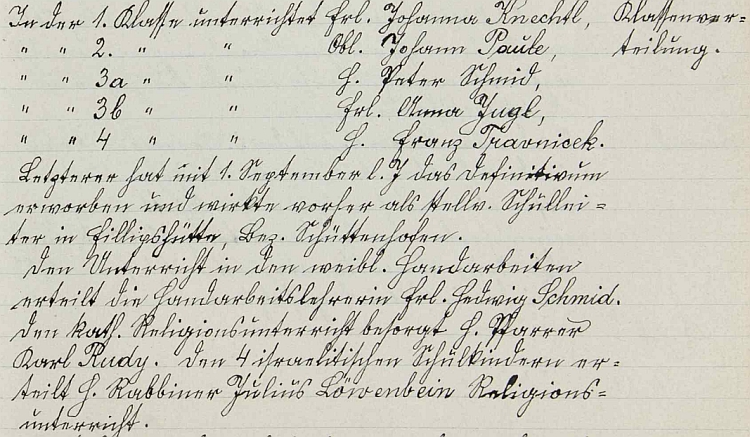 In der 1. Klasse unterrichtet Frl. Johanna Knechtl, Klassenver=
" " 2. " " Obl. Johann Paule, teilung.
" " 3a " " H. Peter Schmid,
" " 3b " " Frl. Anna Jugl,
" " 4 " " H. Franz Travnicek.
Letzterer hat mit 1. September l. J das Definitivum
erworben und wirkte vorher als stellv. Schullei=
ter in Fillipshütte, Bez. Schüttenhofen.
Den Unterricht in den weibl. Handarbeiten
erteilt die Handarbeitslehrerin Frl. Hedwig Schmid.
Den kath. Religionsunterricht besorgt H. Pfarrer
Karl Rudy. Den 4 israelitischen Schulkindern er=
teilt H. Rabbiner Julius Löwenbein Religions=
unterricht.